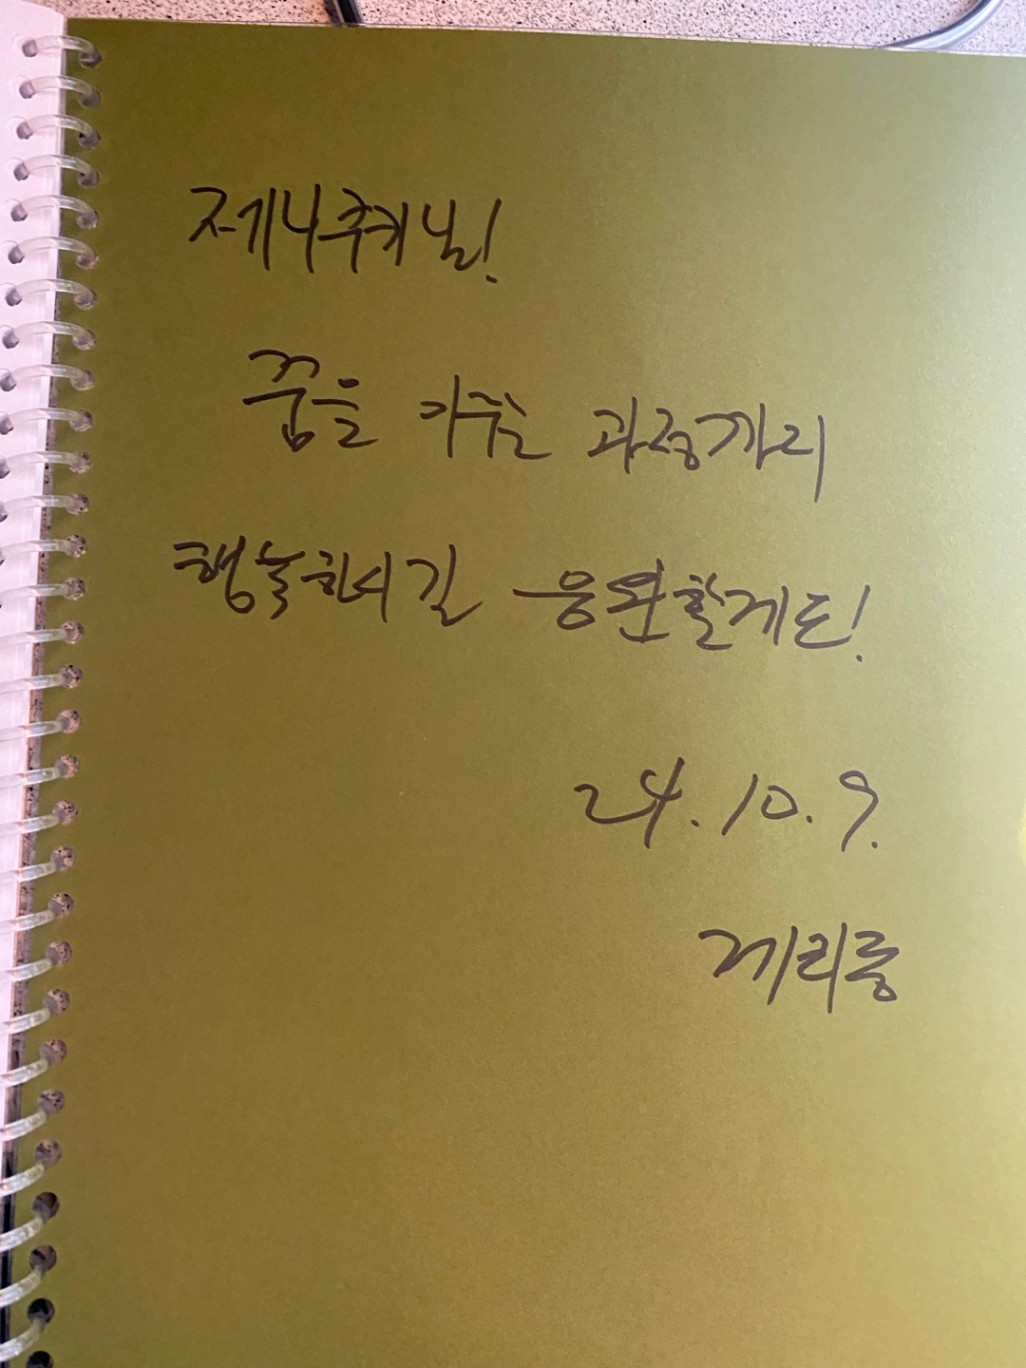 제나추키님!
꿈을 이루는 과정까지
행복하시길 응원할게요!
24.10.9.